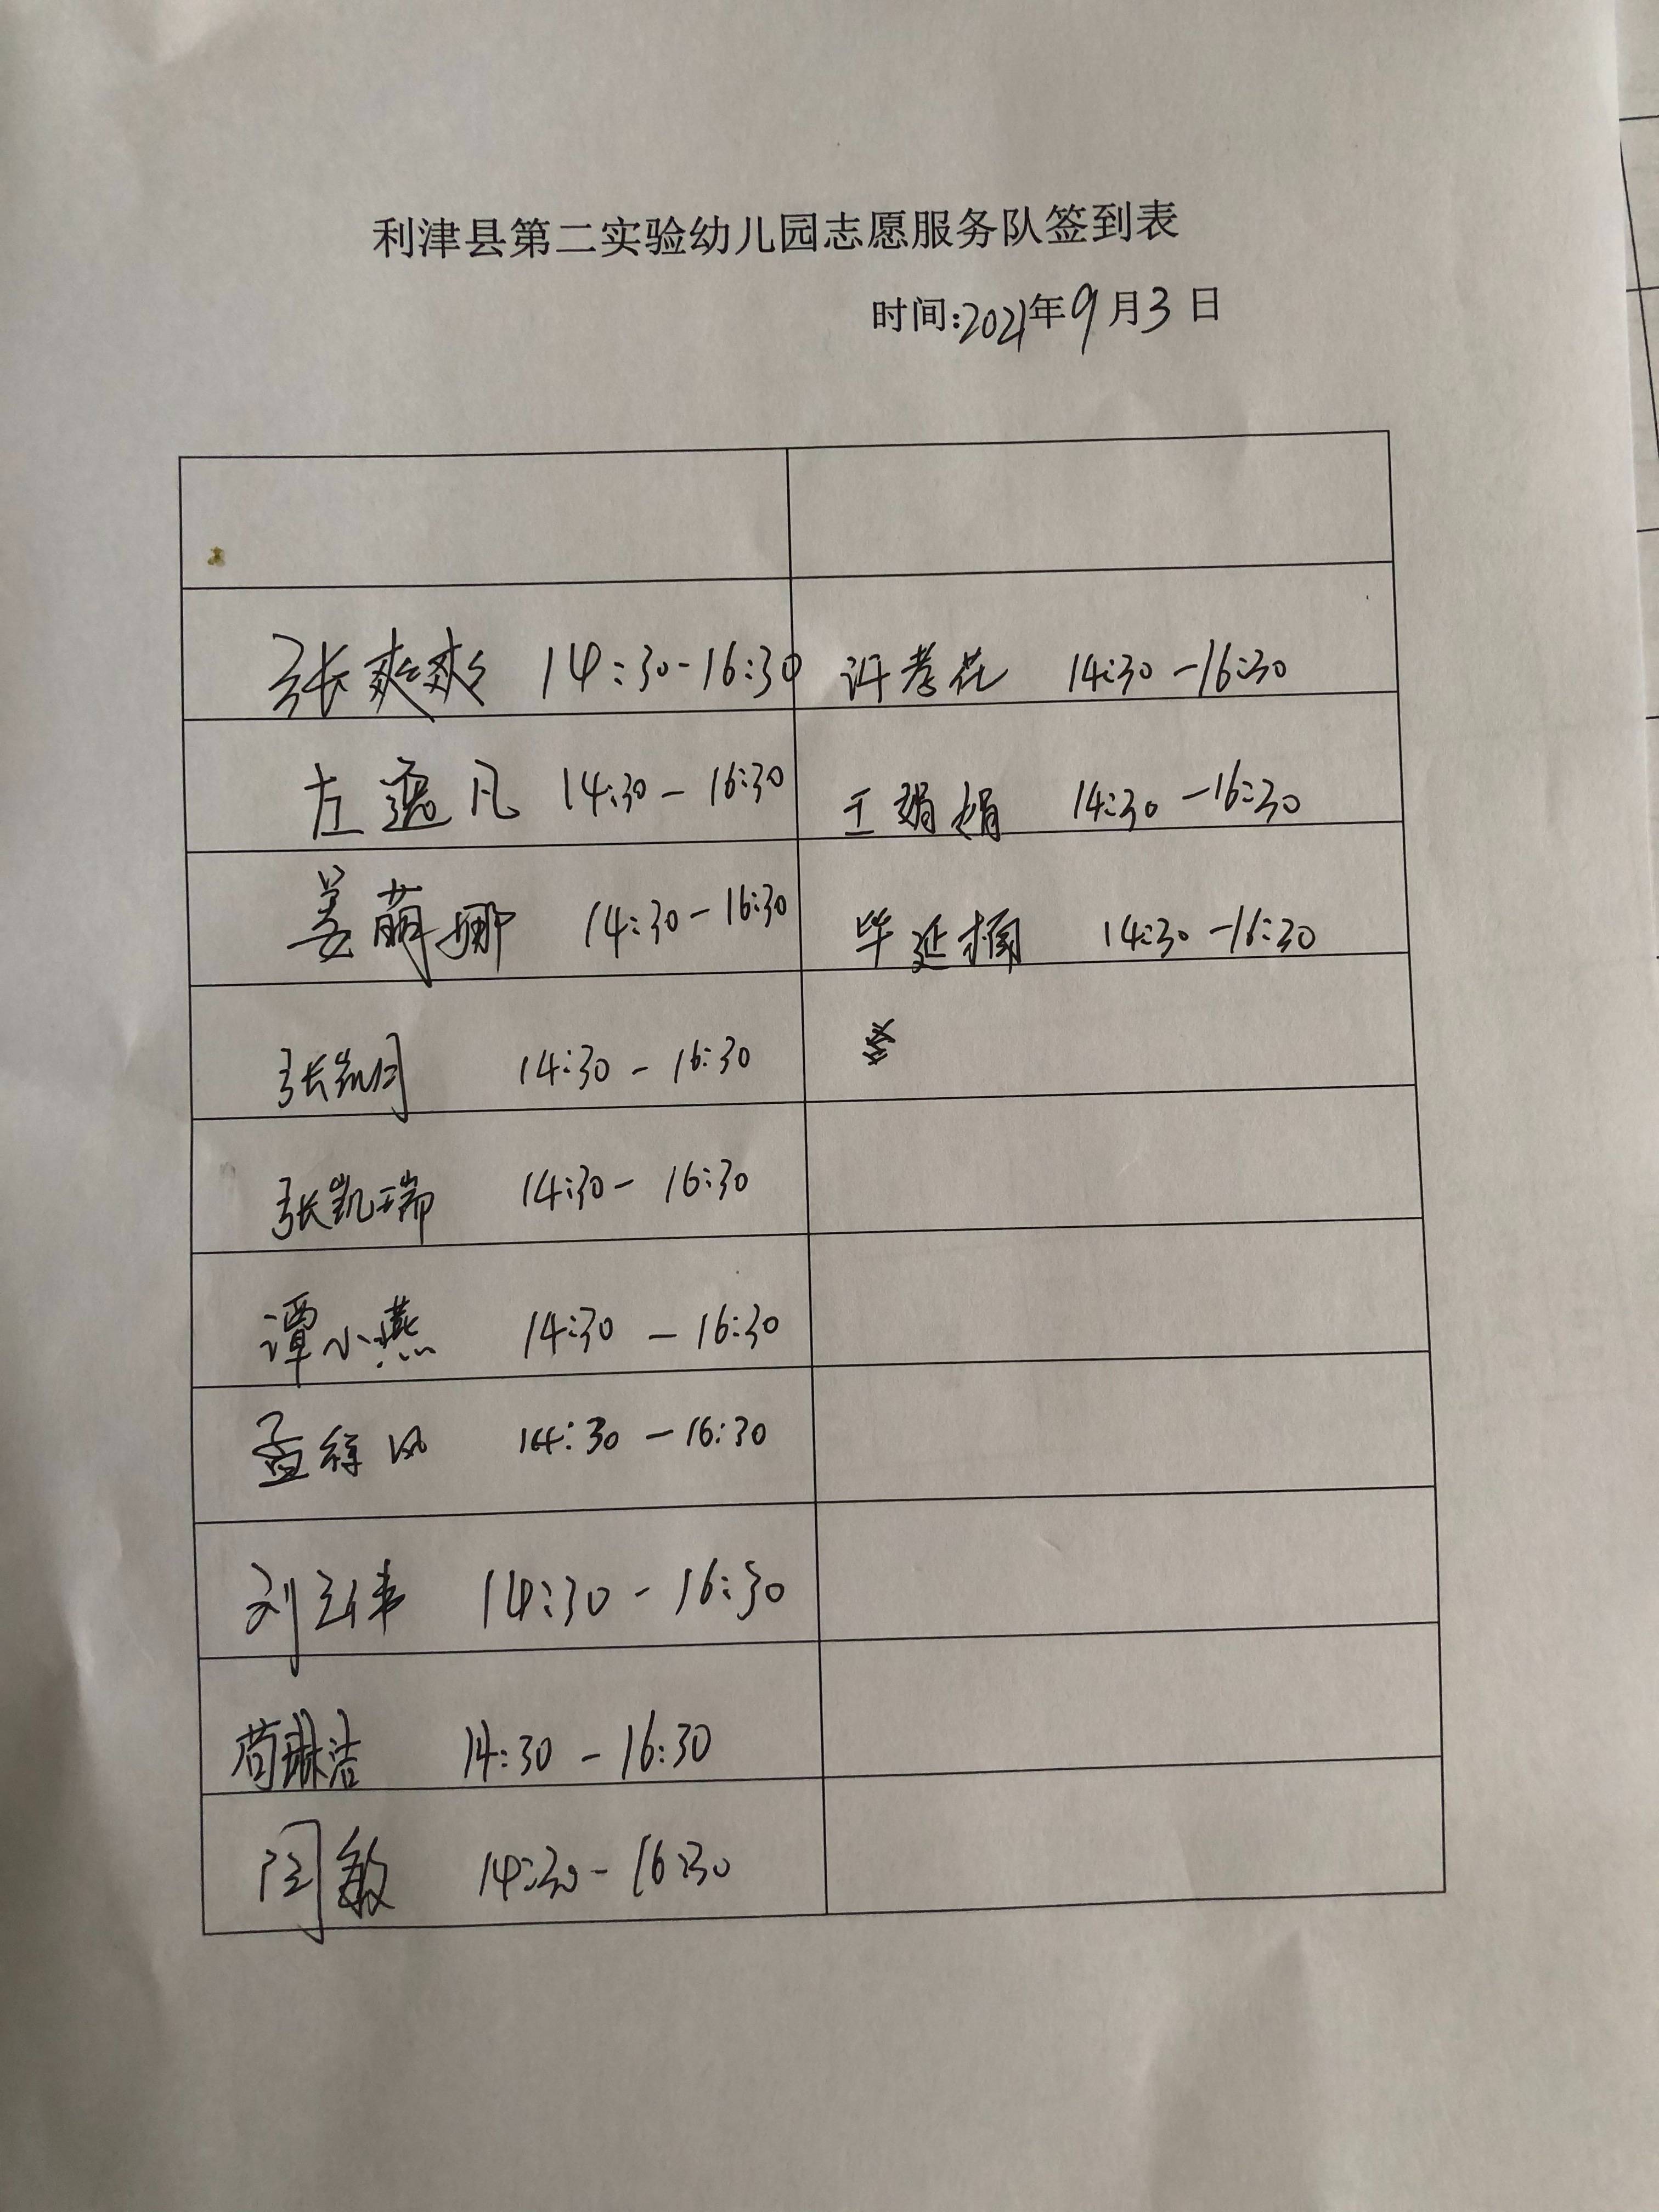 利津县第二实验幼儿园志愿服务队签到表
时间:2021年9月3日
张爽爽 14:30-16:30 许孝花 14:30-16:30
左逸凡 14:30-16:30 王娟娟 14:30-16:30
姜萌娜 14:30-16:30 毕延楠 14:30-16:30
张凯月 14:30-16:30
张凯瑞 14:30-16:30
谭小燕 14:30-16:30
孟徐风 14:30-16:30
刘 14:30-16:30
苟琳洁 14:30-16:30
闫敏 14:30-16:30